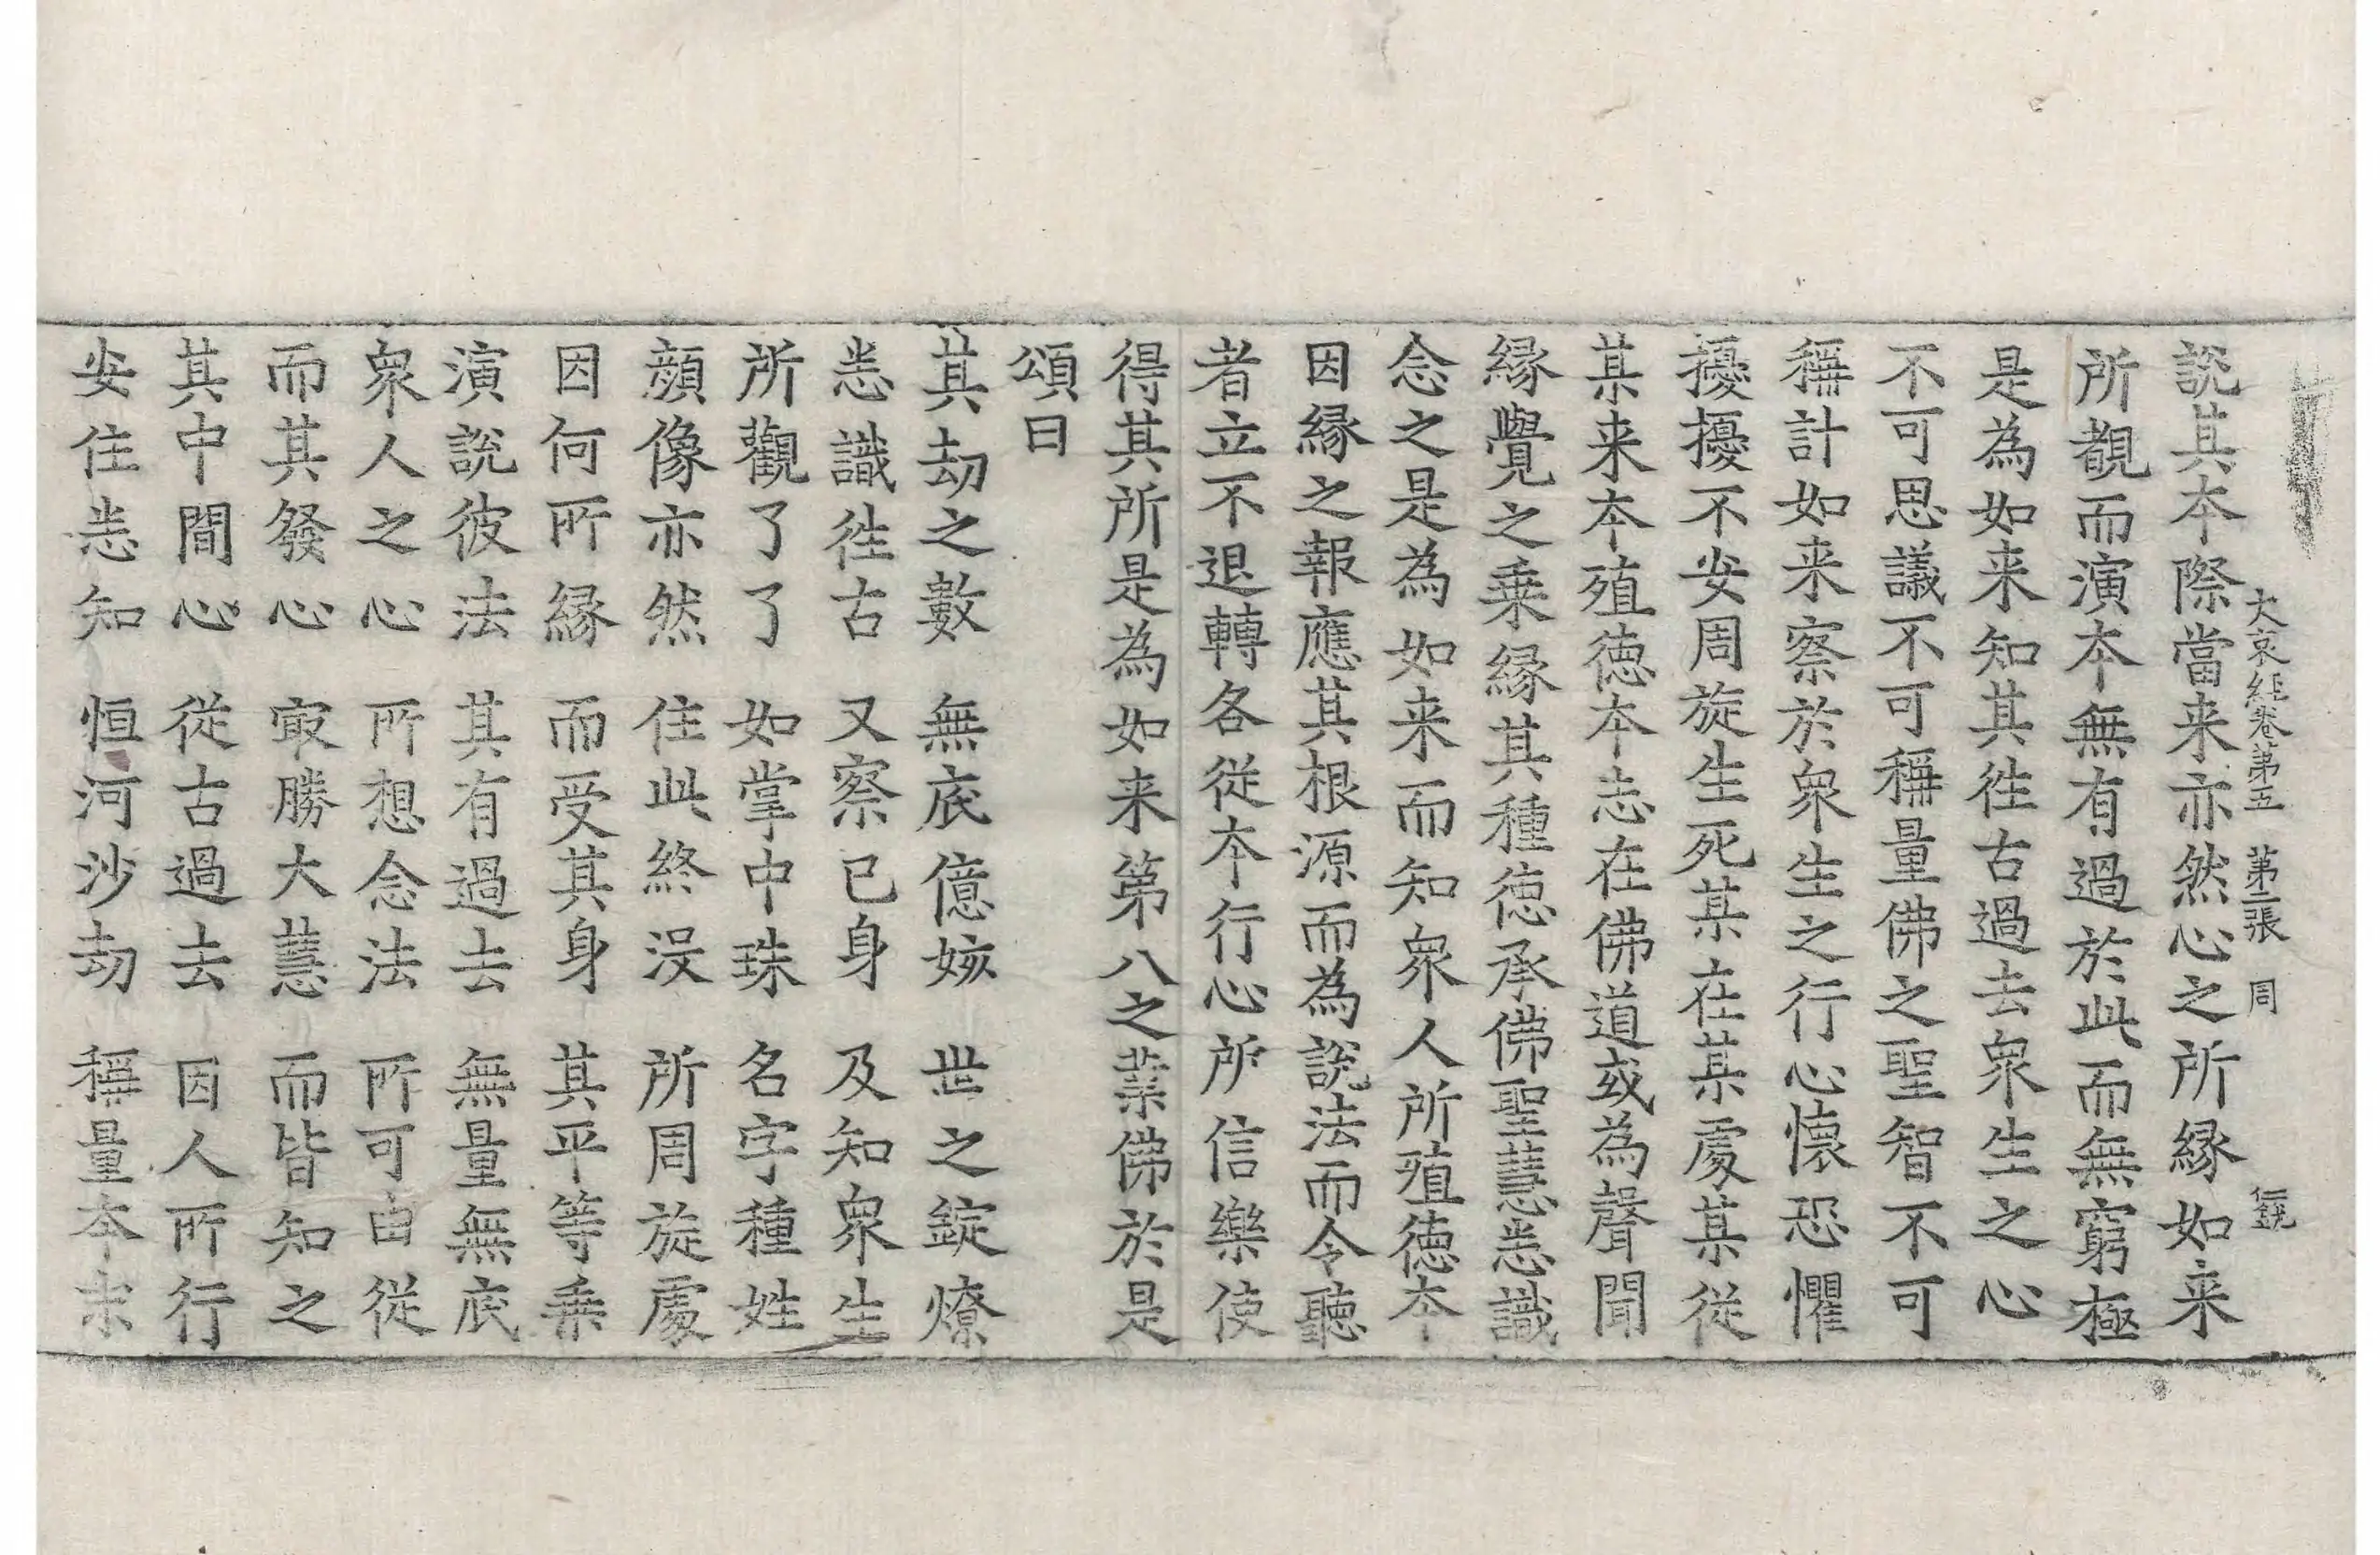 大哀經卷第五　第二張　周
說其本際當来亦然心之所縁如来
所覩而演本無有過於此而無窮極
是為如来知其徃古過去衆生之心
不可思議不可稱量佛之聖智不可
稱計如来察於衆生之行心懷恐懼
擾擾不安周旋生死某在某處某從
某来本殖徳本志在佛道或為聲聞
縁覺之乗縁其種徳承佛聖慧悉識
念之是為如来而知衆人所殖徳本
因縁之報應其根源而為說法而令聽
者立不退轉各從本行心所信樂使
得其所是為如来第八之業佛於是
頌曰
其劫之數　無底億姟　世之錠燎
悉識徃古　又察已身　及知衆生
所觀了了　如掌中珠　名字種姓
顔像亦然　住此終没　所周旋處
因何所縁　而受其身　其平等乗
演說彼法　其有過去　無量無底
衆人之心　所想念法　所可由從
而其發心　㝡勝大慧　而皆知之
其中間心　從古過去　因人所行
安住悉知　恒河沙劫　稱量本末